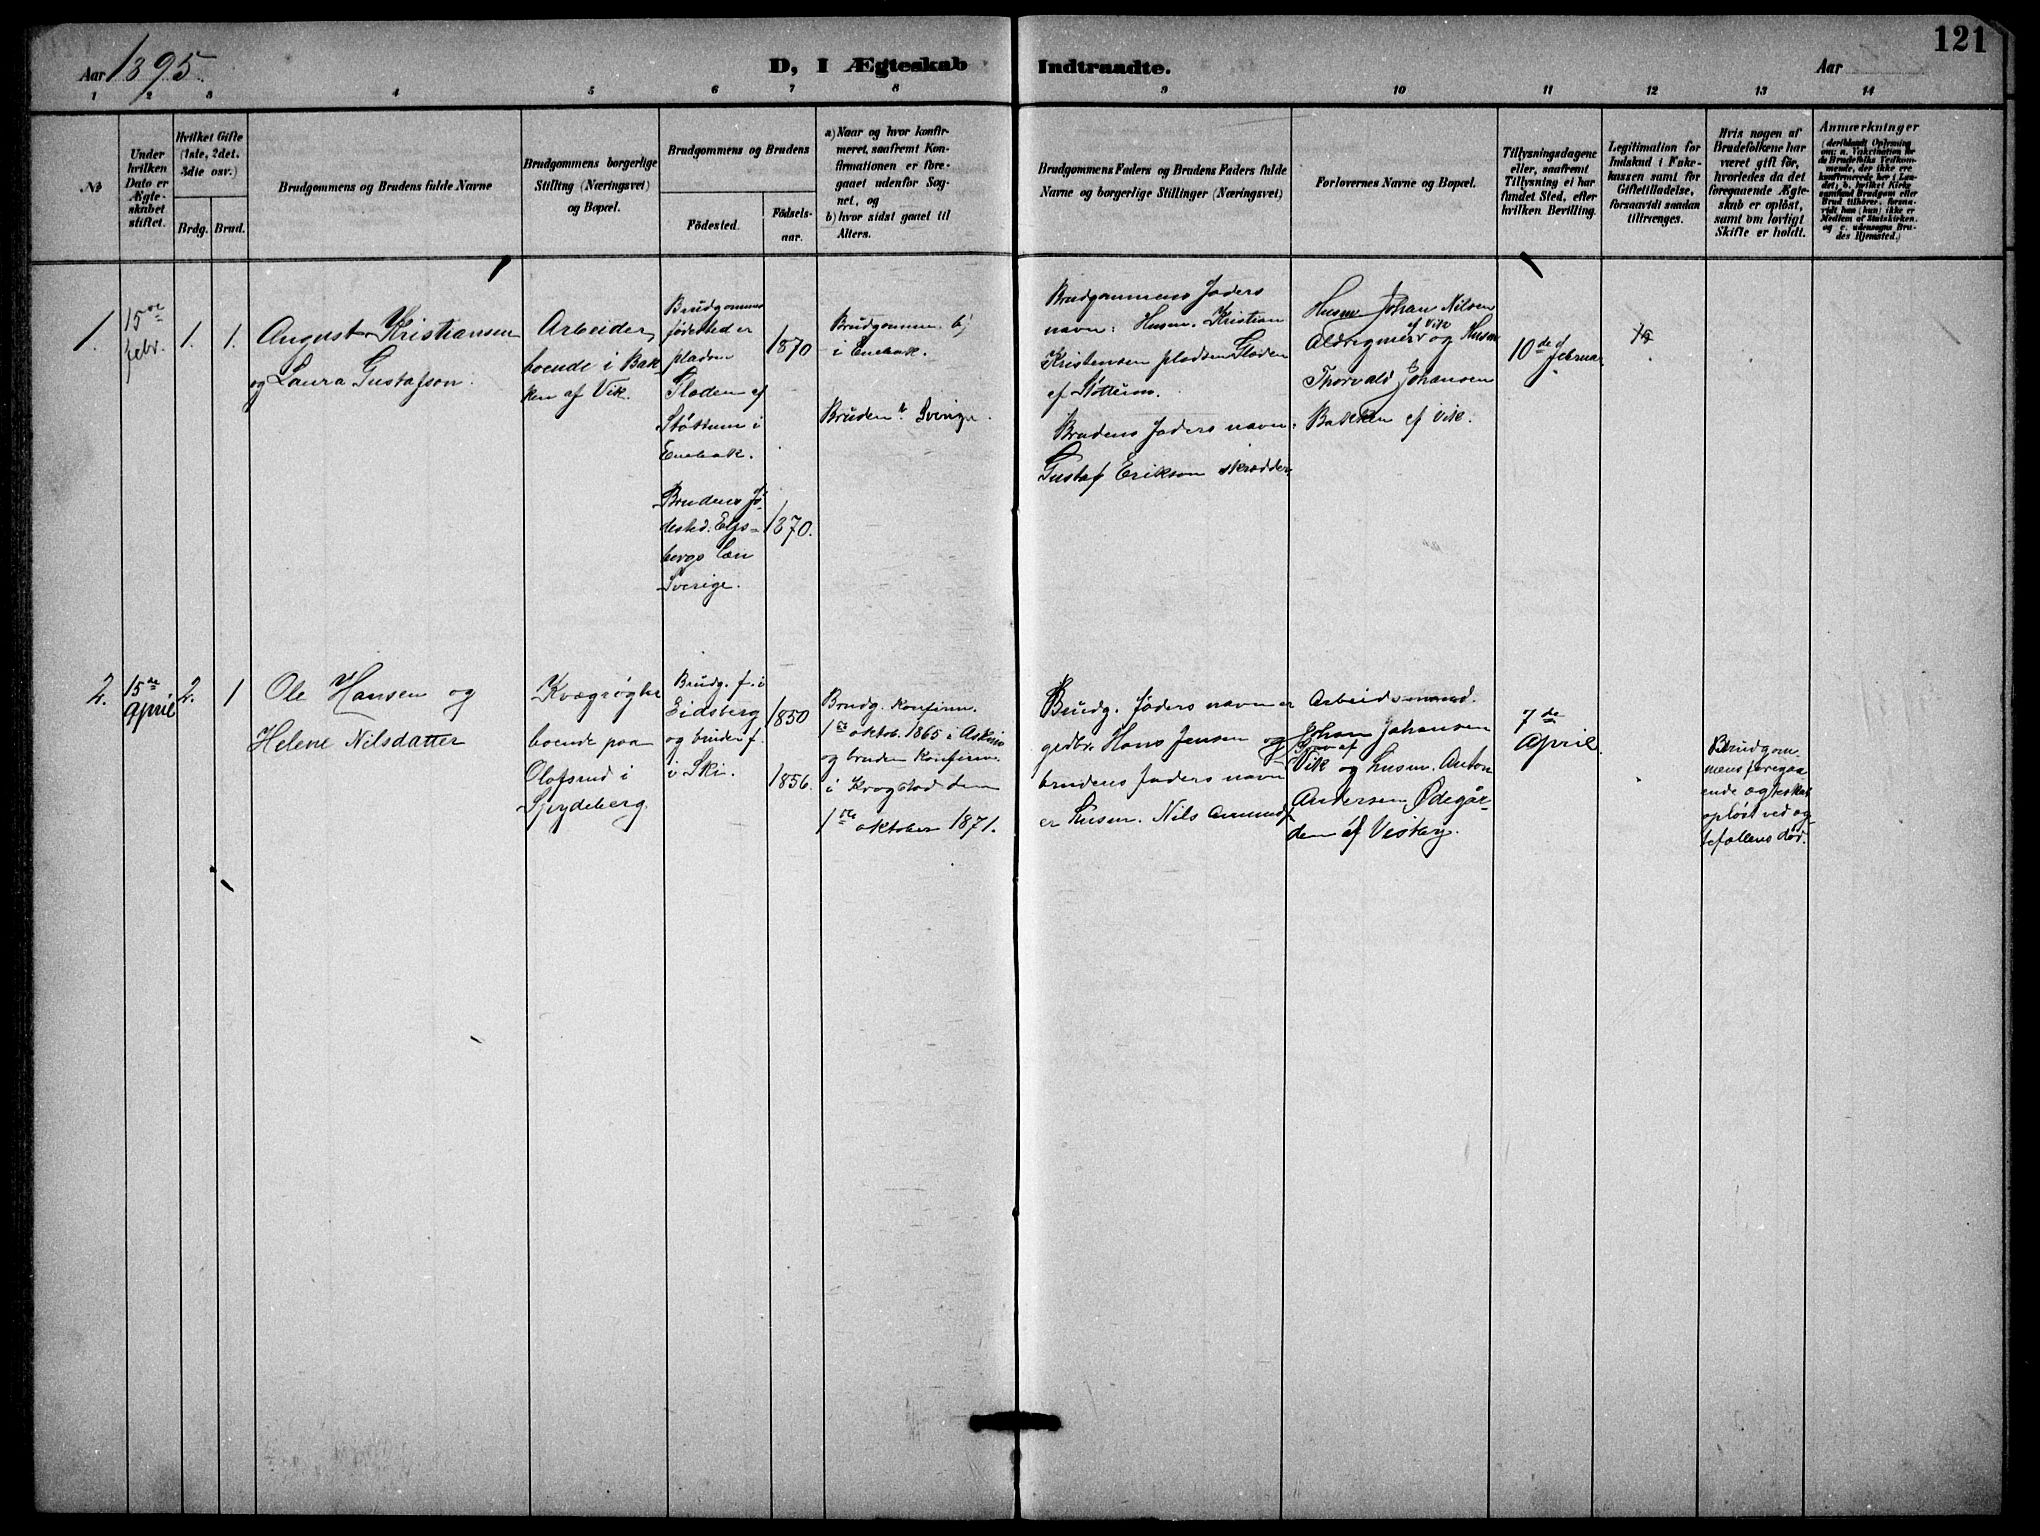 121
Aar 1895.
D, I Ægteskab Indtraadte.
Aar
1 2 3 4 5 6 7 8 9 10 11 12 13 14
No
Under hvilken Dato er Ægteskabet stiftet.
Hvilket Gifte (1ste, 2det. 3die osv.)
Brdg. Brud.
Brudgommens og Brudens fulde Navne
Brudgommens borgerlige
Stilling (Næringsvei)
og Bopæl.
Brudgommens og Brudens
Födested.
Födsels-
aar.
a) Naar og hvor konfir-
meret, saafremt Kon-
firmationen er fore-
gaaet udenfor Sog-
net, og
b) hvor sidst gaaet til
Alters.
Brudgommens Faders og Brudens Faders fulde
Navne og borgerlige Stillinger (Næringsvei)
Forlovernes Navne og Bopæl.
Tillysningsdagene
eller, saafremt
Tillysning ei har
fundet Sted, efter
hvilken Bevilling.
Legitimation for
Indskud i Enke-
kassen samt for
Giftetilladelse,
forsaavidt saadan
tiltrænges.
Hvis nogen af
Brudefolkene har
været gift för,
hvorledes da det
foregaaende Ægte-
skab er oplöst,
samt om lovligt
Skifte er holdt.
Anmærkninger
(deriblandt Oplysning
om: a. Vakcination for
de Brudefolks Vedkom-
mende, der ikke ere
konfirmerede her i Lan-
det; b. hvilket Kirke
samfund Brudgom eller
Brud tilhörer, forsaa-
vidt han (hun) ikke er
Medlem af Statskirken.
og c. udensogns Bru-
des Hjemsted.)
1.
15de
febr.
1. 1.
August Kristiansen
og Laura Gustafson.
Arbeider
boende i Bak-
ken af Vik.
Brudgommens
fødested er
pladsen
Floden af
Støttum i
Enebak.
1870
Brudgommen b)
i Enebak.
Bruden " Sverige.
Brudens fø-
dested. Elfs-
borgs Læn
Sverige.
1870.
Brudgommens faders
navn: Husm. Kristian
Kristensen pladsen Floden
af Støttum.
Brudens faders navn:
Gustaf Erikson skrædder
Husm Johan Nilsen
af Vik og Husm
Thorvald Johansen
Bakken af Vik.
10de
februar
2.
15de
April
2. 1
Ole Hansen og
Helene Nilsdatter
Kvægrøgter
boende paa
Olafsrud i
Spydeberg.
Brudg. f. i
Eidsberg
og bruden f.
i Ski.
1850
1856.
Brudg. Konfirm.
1ste oktob. 1865 i Askim
og bruden Konfirm.
i Krogstad den
1ste oktober 1871.
Brudg. faders navn er
gdbr. Hans Jensen og
brudens faders navn
er husm. Nils Amunds.
Arbeidsmand
Johan Johansen
af
Vik og husm. Anton
Andersen Ødegår-
den af Vestby.
7de
April
Brudgom-
mens foregaa-
ende ægteskab
opløst ved æg-
tefællens død.